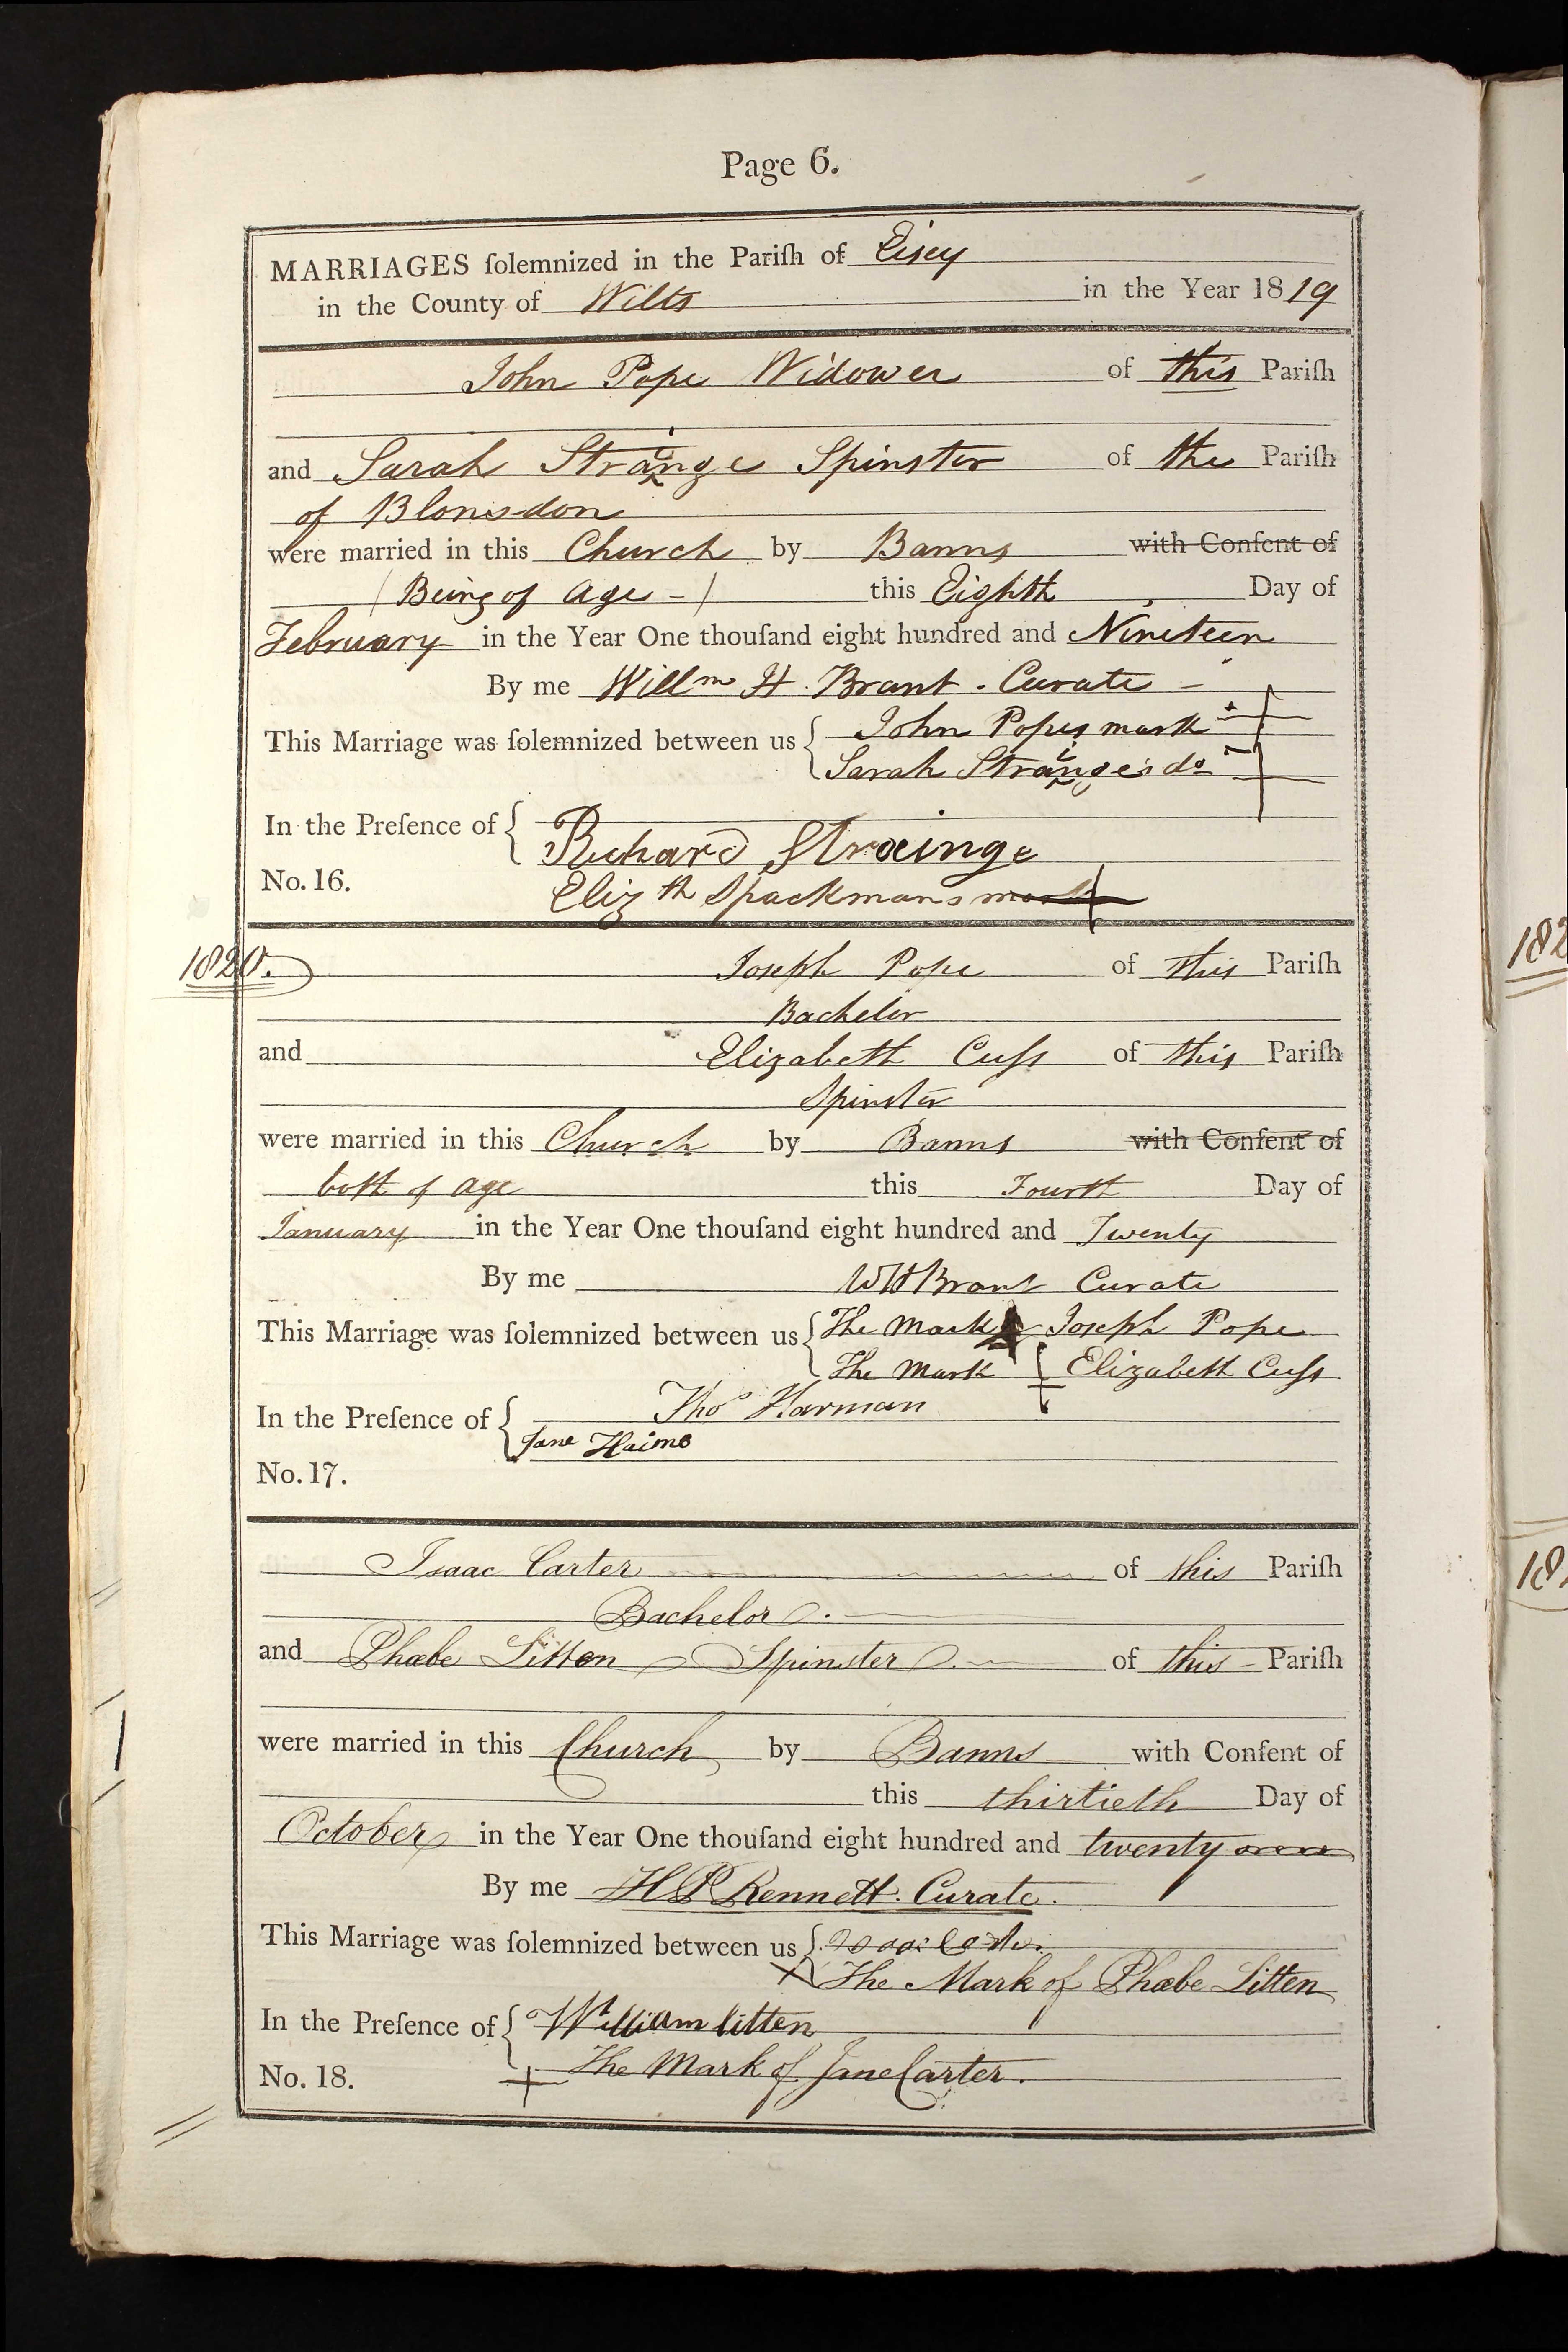 Page 6.
MARRIAGES ſolemnized in the Pariſh of Eisey
in the County of Wilts in the Year 1819
John Pope Widower of this Pariſh
and Sarah Strainge Spinster of the Pariſh
of Blonsdon
were married in this Church by Banns with Conſent of
(Being of age -) this Eighth Day of
February in the Year One thouſand eight hundred and Nineteen
By me Willm H. Brant. Curate -
This Marriage was ſolemnized between us { John Popes mark +
Sarah Strainges do +
In the Preſence of { Richard Strainge
No. 16.
Elizth Spackmans mark +
1820.
Joseph Pope of this Pariſh
Bachelor
and Elizabeth Cuſs of this Pariſh
Spinster
were married in this Church by Banns with Conſent of
both of age this Fourth Day of
January in the Year One thouſand eight hundred and Twenty
By me WH Brant Curate
This Marriage was ſolemnized between us { The Mark Joseph Pope
The Mark + Elizabeth Cuſs
In the Preſence of { Thos Harman
Jane Haims
No. 17.
Isaac Carter of this Pariſh
Bachelor.
and Phœbe Litten Spinster. of this Pariſh
were married in this Church by Banns with Conſent of
this thirtieth Day of
October in the Year One thouſand eight hundred and twenty
By me H P Rennett. Curate.
This Marriage was ſolemnized between us { Isaac Carter
X The Mark of Phœbe Litten
In the Preſence of { William litten
No. 18.
+ The Mark of Jane Carter.
182
18